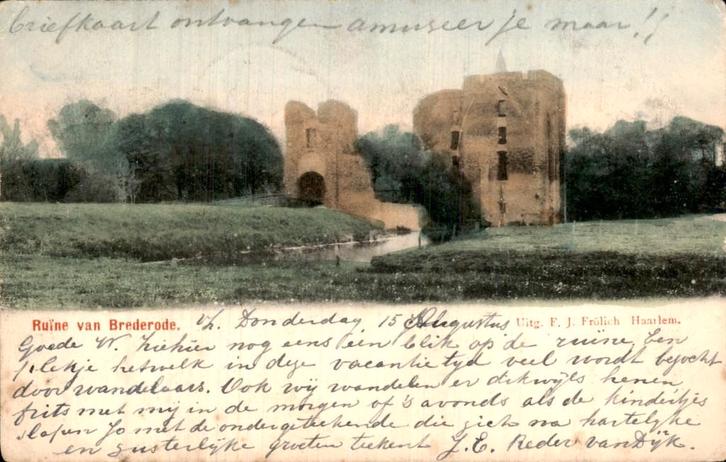 briefkaart ontvangen amuseer je maar!!
Ruïne van Brederode.
Uitg. F. J. Frölich Haarlem.
Donderdag 15 Augustus
Goede W. Ziehier nog eens een blik op de ruïne. Een
plekje hetwelk in deze vacantie tijd veel wordt bezocht
door wandelaars. Ook wij wandelen er dikwijls henen
frits met mij in de morgen of 's avonds als de kindertjes
slapen Jo met de ondergeteekende die zich na hartelijke
en zusterlijke groeten teekent J. C. Reder van Dijk.